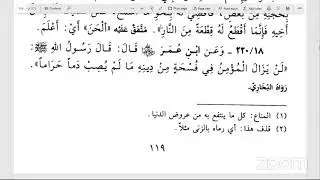 بِحُجَّتِهِ مِنْ بَعْضٍ، فَأَقْضِيَ لَهُ بِنَحْوِ
أَخِيهِ فَإِنَّمَا أَقْطَعُ لَهُ قِطْعَةً مِنَ النَّارِ». مُتَّفَقٌ عَلَيْهِ «أَلْحَنَ» أَيْ: أَعْلَمَ.
٢٢٠/١٨ - وَعَنِ ابْنِ عُمَرَ قَالَ: قَالَ رَسُولُ اللهِ ﷺ:
«لَنْ يَزَالَ الْمُؤْمِنُ فِي فُسْحَةٍ مِنْ دِينِهِ مَا لَمْ يُصِبْ دَماً حَرَاماً».
رَوَاهُ الْبُخَارِيُّ.
(١) المتاع: كل ما ينتفع به من عروض الدنيا.
(٢) قذف هذا: أي رماه بالزنى مثلاً.
١١٩
zoom